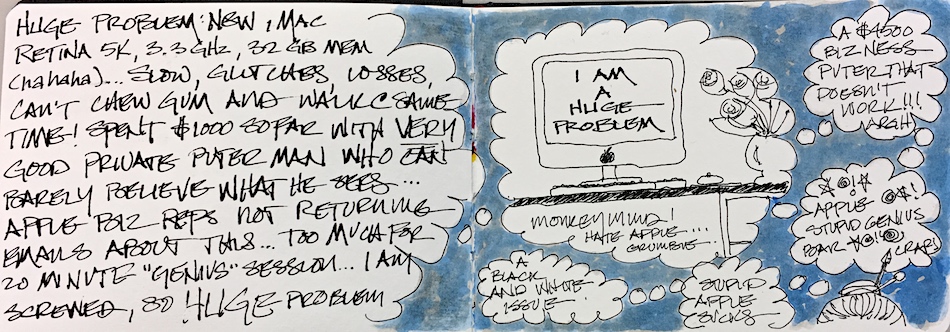 HUGE PROBLEM: NEW iMAC
RETINA 5K, 3.3 GHz, 32 GB MEM
(hahaha)... SLOW, GLITCHES, LOSSES,
CAN'T CHEW GUM AND WALK C SAME
TIME! SPENT $1000 SO FAR WITH VERY
GOOD PRIVATE PUTER MAN WHO CAN
BARELY BELIEVE WHAT HE SEES...
APPLE BIZ REPS NOT RETURNING
EMAILS ABOUT THIS... TOO MUCH FOR
20 MINUTE "GENIUS" SESSION... I AM
SCREWED, SO HUGE PROBLEM
I AM
A
HUGE
PROBLEM
MONKEY MIND!
HATE APPLE....
GRUMBLE...
A
BLACK
AND WHITE
ISSUE
STUPID
APPLE
SUCKS
A $4500
BIZNESS
PUTER THAT
DOESN'T
WORK!!!
ARGH
APPLE
STUPID GENIUS
CRAP!